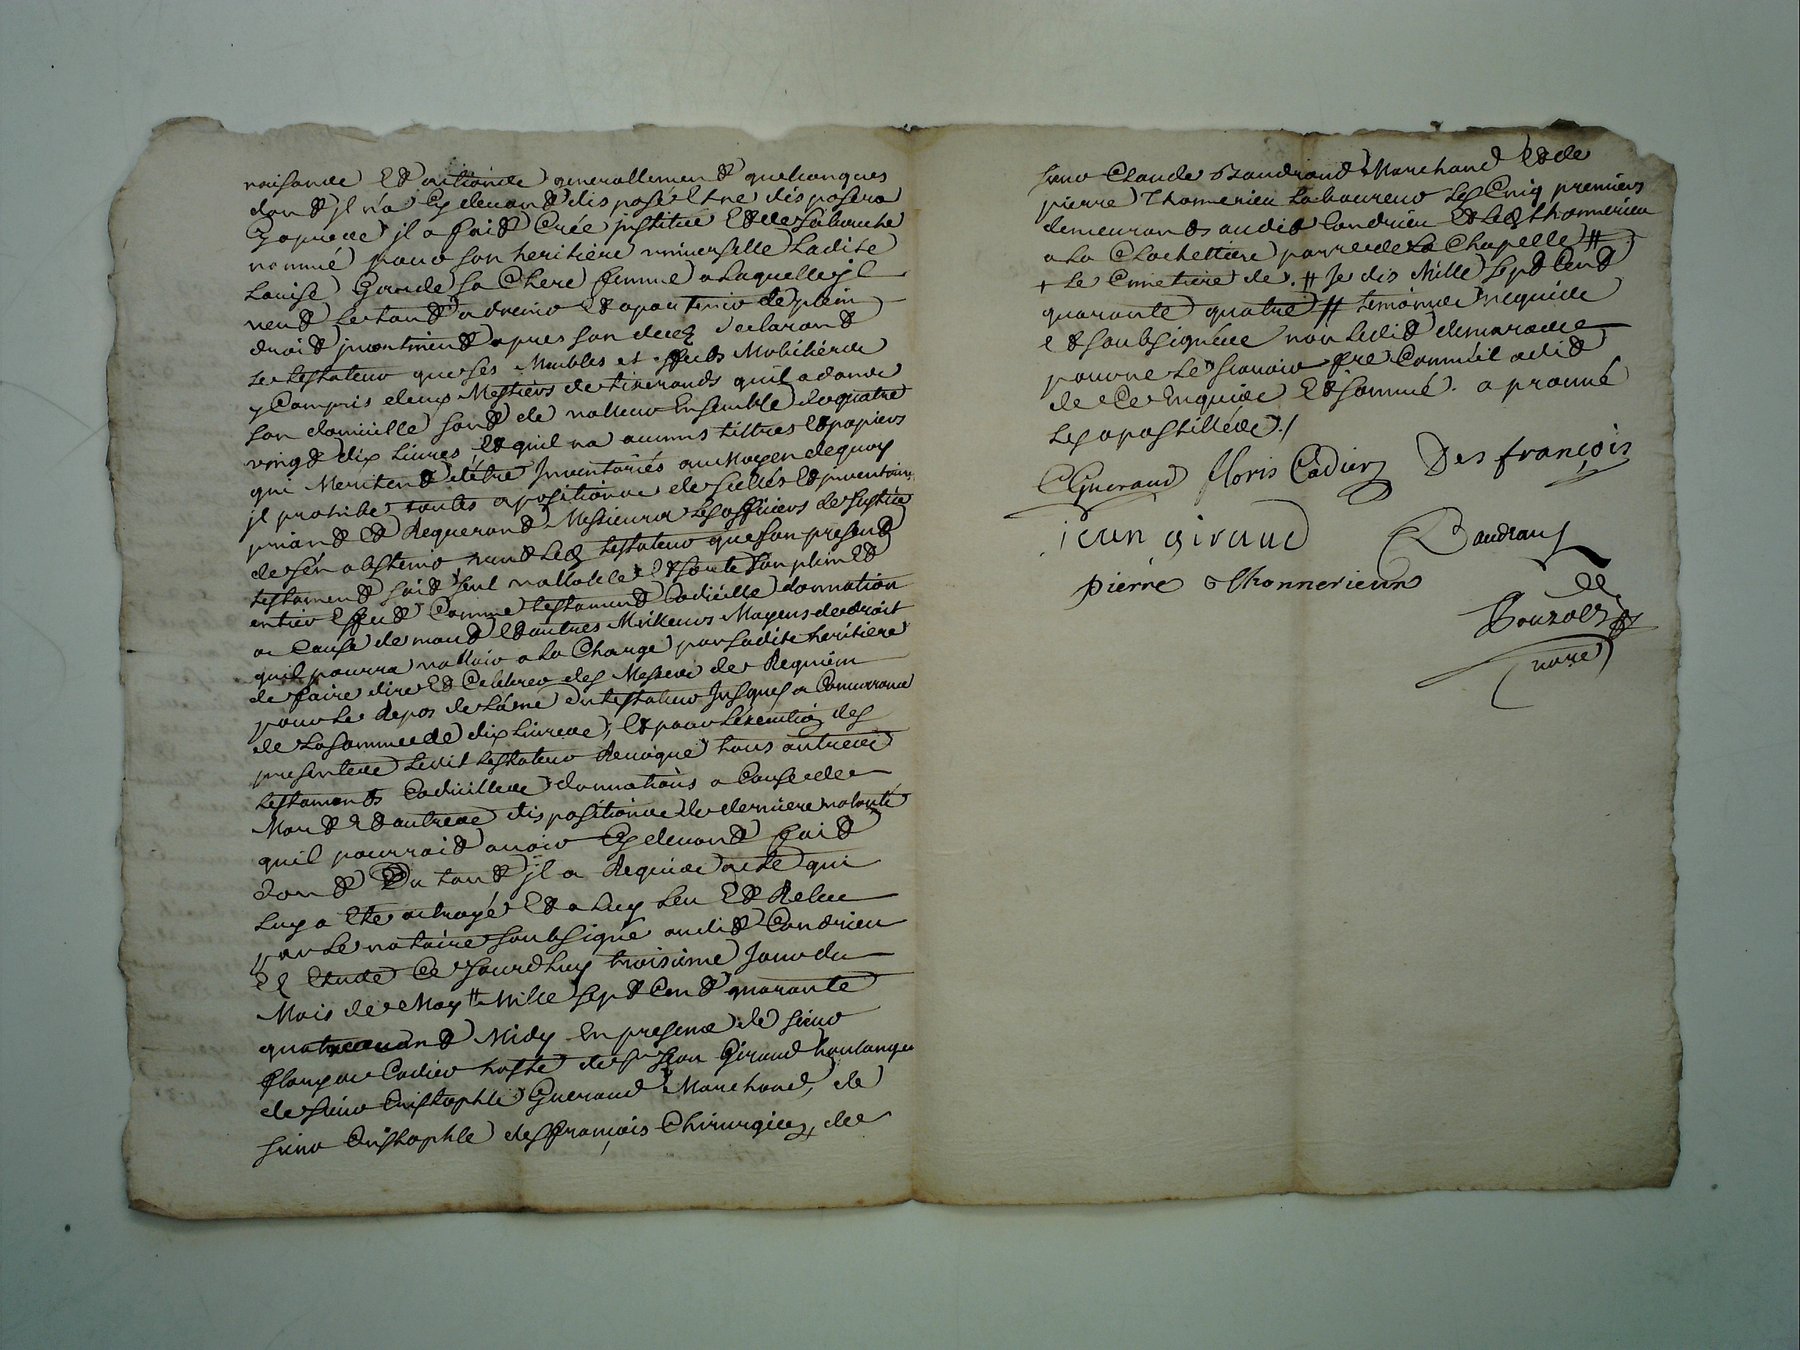 noisance Et actionde generallement quelconques
dont jl n'a Cy devant disposé Et ne disposera
Cy aprede jl a fait Crée jnstitué Et de sa bouche
nommé pour son heritiere universelle Ladite
Louise Giraude sa Chere femme a Laquelle jl
veut Le tout advenir Et apartenir de plain
droit jncontinent apres son decez declarant
Le testateur que ses Meubles et effects Mobiliérde
y Compris deux Mestiers de tixerands quil a dans
son domicille sont de valleur Ensemble de quatre
vingt dix Livres, et quil na aucuns tiltres Et papiers
qui Meritent d'être Inventôriés au Moyen dequoy
jl prohibe toutes apositionde de scellés Et jnventaire
priant Et Requerant Messieurs Les officiers de Justice
de s'en abstenir, veut Led testateur que son present
testament soit seul vallable Et sorte son plein Et
entier Effect Comme testament Codicille donnation
a Cause de mort Et autres Meilleurs Moyens de droit
quil pourra valloir a La Charge par Ladite heritiere
de faire dire Et Celebrer des Messes de Requiem
pour Le Repos de L'ame du testateur Jusques a Concurrance
de La somme de dix Livres, Et pour L'execution des
presentes Ledit testateur Revoque tous autres
testaments Codicilles donnations a Cause de
Mort Et autres dispositionde de derniere volonté
quil pourroit avoir Cy devant fait
Dont Du tout jl a Requis acte qui
Luy a Eté octroyé Et a Luy Leu Et Releu
par Le notaire soubsigné audit Condrieu
En Etude Ce Jourdhuy troisieme Jour du
Mois de May # Mille sept Cent quarante
quatre avant Midy En presence de sieur
floris Cadier hoste de sr Jean Giraud boulanger
de sieur Cristophle Gueraud Marchand, de
sieur Cristophle desfrançois Chirurgien, de
sieur Claude Baudrand Marchand Et de
pierre Thomerieu Laboureur Les Cinq premiers
demeurants audit Condrieu Et Led thomerieu
a La Clochettiere parr de La Chapelle #
+ Le Cimetiere de . # Je dis Mille sept Cent
quarante quatre # temoins requide
Et soubsignéde non Ledit
pour ne Le sçavoir fre Comme il a dit
de Ce Enquis Et sommé . aprouvé
Les apostillées ./
CGueraud floris Cadier Desfrançois
jean giraud Baudrand
pierre thonnerieux
de
Bouzolz
nore